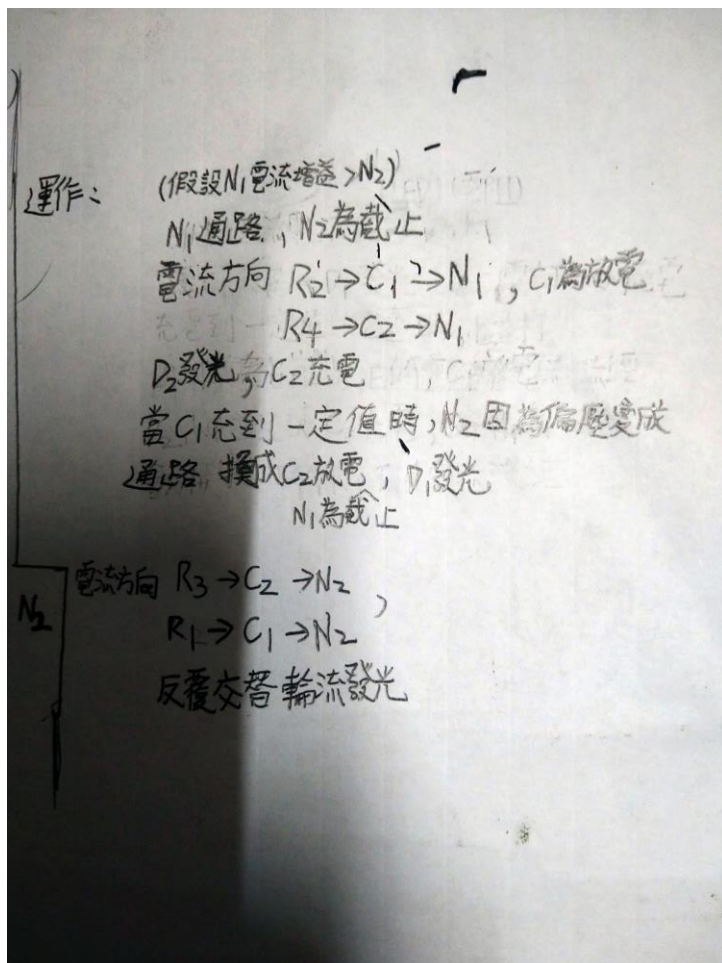 運作：
(假設N1電流增益>N2)
N1通路，N2為截止
電流方向 R2→C1→N1，C1為放電
R4→C2→N1
D2發光，C2充電
當C1充到一定值時，N2因為偏壓變成
通路 換成C2放電，D1發光
N1為截止
電流方向 R3→C2→N2，
N2
R1→C1→N2
反覆交替輪流發光